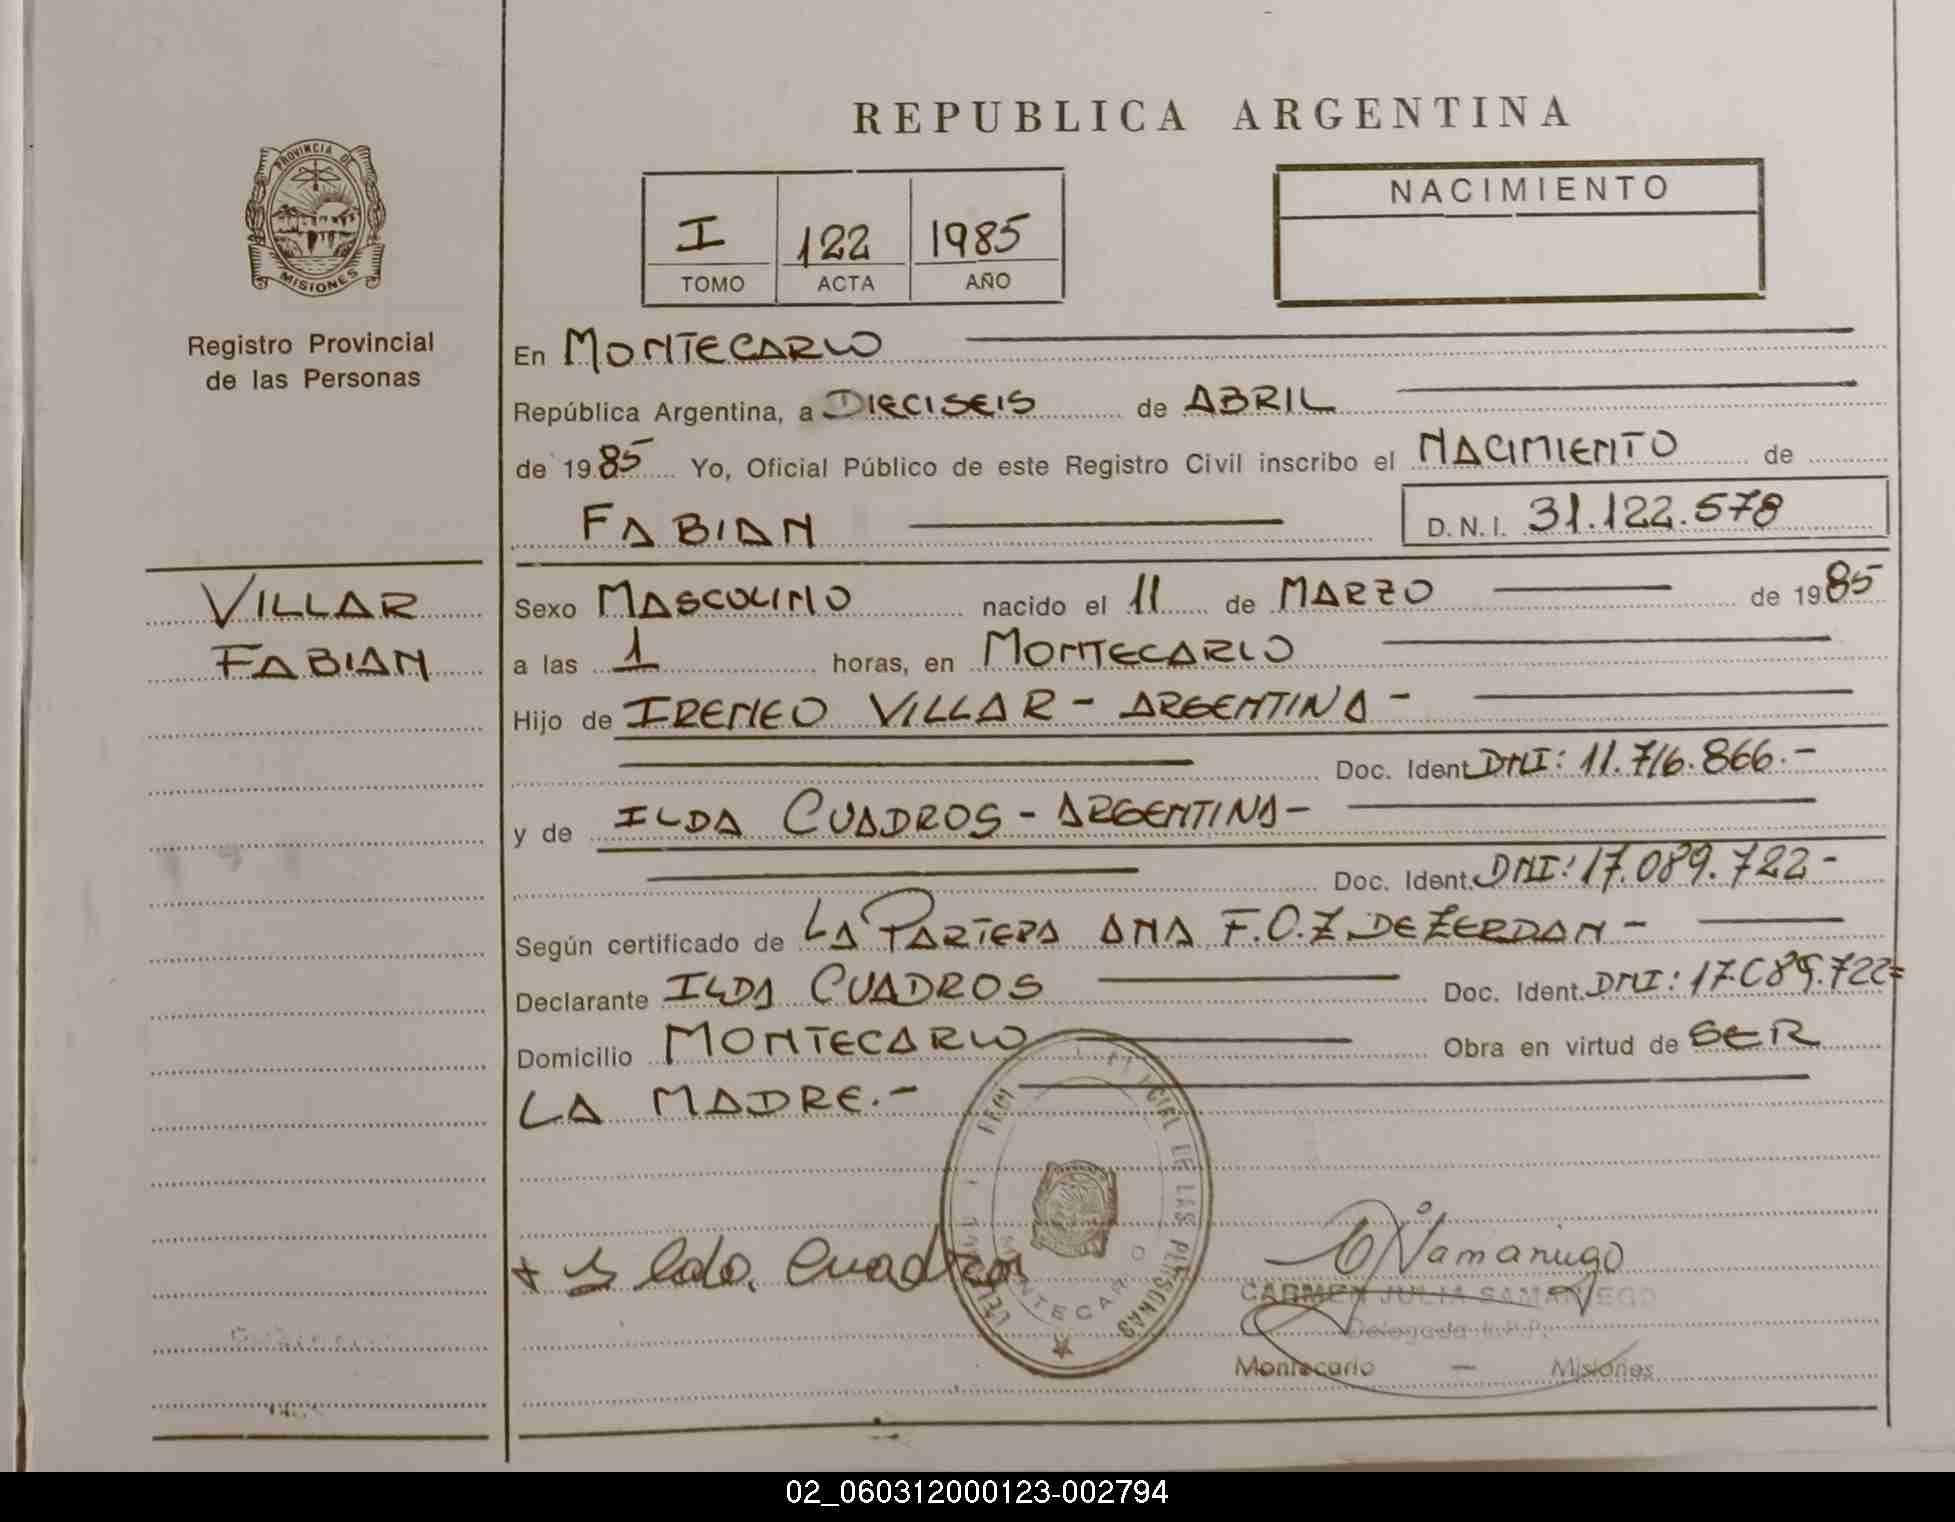 REPUBLICA ARGENTINA
PROVINCIA DE
MISIONES
Registro Provincial
de las Personas
I 122 1985
TOMO ACTA AÑO
NACIMIENTO
En MONTECARLO
República Argentina, a DIECISEIS de ABRIL
de 1985 Yo, Oficial Público de este Registro Civil inscribo el NACIMIENTO de
FABIAN D.N.I. 31.122.578
VILLAR
FABIAN
Sexo MASCULINO nacido el 11 de MARZO de 1985
a las 1 horas, en MONTECARLO
Hijo de IRENEO VILLAR - ARGENTINA -
Doc. Ident. DNI: 11.716.866.-
y de ILDA CUADROS - ARGENTINA -
Doc. Ident. DNI: 17.089.722-
Según certificado de LA PARTERA ANA F.O.Z. DE ZERDAN -
Declarante ILDA CUADROS Doc. Ident. DNI: 17.089.722=
Domicilio MONTECARLO Obra en virtud de SER
LA MADRE.-
DE LAS PERSONAS
MONTECARLO
Cuadros
Samaniego
CARMEN JULIA SAMANIEGO
Delegada R.P.P.
Montecarlo — Misiones
02_060312000123-002794